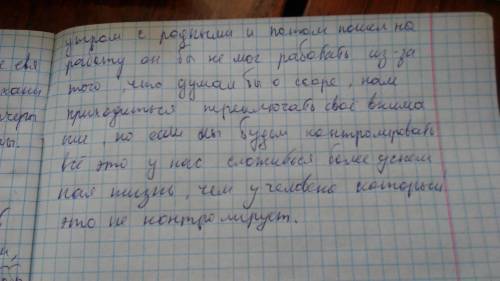 утром с родными и потом пошел на
работу он бы не мог работать из-за
того, что думал бы о скоре, нам
приходиться преключать своё внима
ние, но если мы будем контролировать
всё это у нас сложиться более успеш
ная жизнь, чем у человека который
это не контролирует.